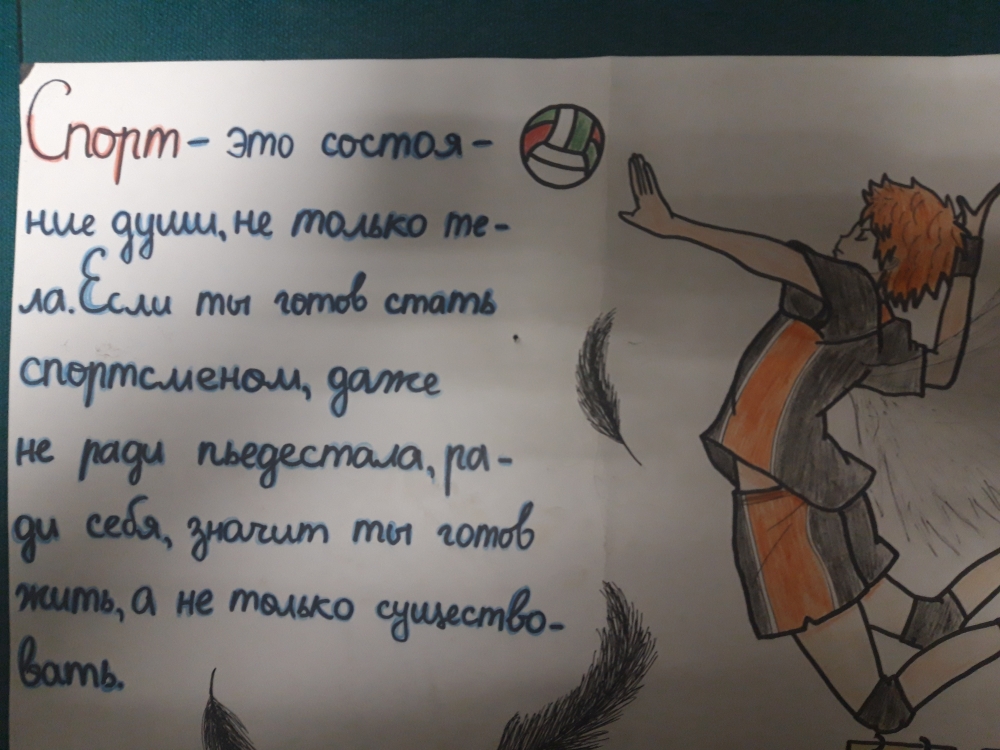 Спорт - это состоя-
ние души, не только те-
ла. Если ты готов стать
спортсменом, даже
не ради пьедестала, ра-
ди себя, значит ты готов
жить, а не только существо-
вать.